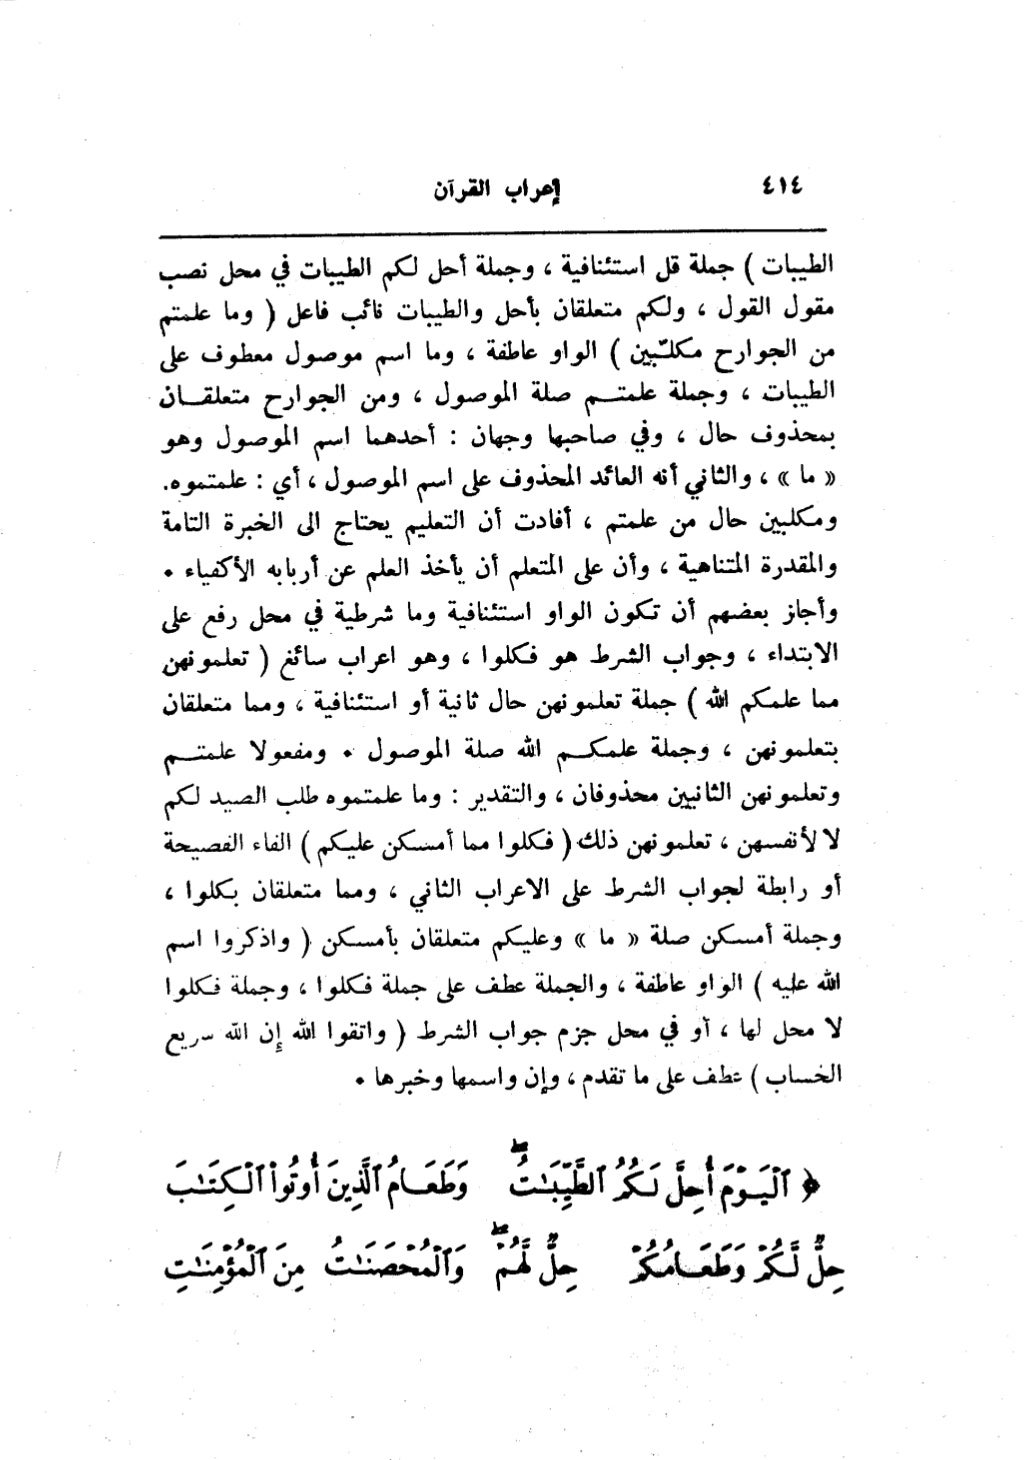 ٤١٤ إعراب القرآن
الطيبات ) جملة قل استئنافية ، وجملة أحل لكم الطيبات في محل نصب
مقول القول ، ولكم متعلقان بأحل والطيبات نائب فاعل ( وما علمتم
من الجوارح مكلّبين ) الواو عاطفة ، وما اسم موصول معطوف على
الطيبات ، وجملة علمتم صلة الموصول ، ومن الجوارح متعلقان
بمحذوف حال ، وفي صاحبها وجهان : أحدهما اسم الموصول وهو
« ما » ، والثاني أنه العائد المحذوف على اسم الموصول ، أي : علمتموه.
ومكلبين حال من علمتم ، أفادت أن التعليم يحتاج الى الخبرة التامة
والمقدرة المتناهية ، وأن على المتعلم أن يأخذ العلم عن أربابه الأكفياء .
وأجاز بعضهم أن تكون الواو استئنافية وما شرطية في محل رفع على
الابتداء ، وجواب الشرط هو فكلوا ، وهو اعراب سائغ ( تعلمونهن
مما علمكم الله ) جملة تعلمونهن حال ثانية أو استئنافية ، ومما متعلقان
بتعلمونهن ، وجملة علمكم الله صلة الموصول . ومفعولا علمتم
وتعلمونهن الثانيين محذوفان ، والتقدير : وما علمتموه طلب الصيد لكم
لا لأنفسهن ، تعلمونهن ذلك ( فكلوا مما أمسكن عليكم ) الفاء الفصيحة
أو رابطة لجواب الشرط على الاعراب الثاني ، ومما متعلقان بكلوا ،
وجملة أمسكن صلة « ما » وعليكم متعلقان بأمسكن ( واذكروا اسم
الله عليه ) الواو عاطفة ، والجملة عطف على جملة فكلوا ، وجملة فكلوا
لا محل لها ، أو في محل جزم جواب الشرط ( واتقوا الله إن الله سريع
الحساب ) عطف على ما تقدم ، وإن واسمها وخبرها .
﴿ ٱلۡيَوۡمَ أُحِلَّ لَكُمُ ٱلطَّيِّبَٰتُۖ وَطَعَامُ ٱلَّذِينَ أُوتُوا۟ ٱلۡكِتَٰبَ
حِلٌّ لَّكُمۡ وَطَعَامُكُمۡ حِلٌّ لَّهُمۡۖ وَٱلۡمُحۡصَنَٰتُ مِنَ ٱلۡمُؤۡمِنَٰتِ